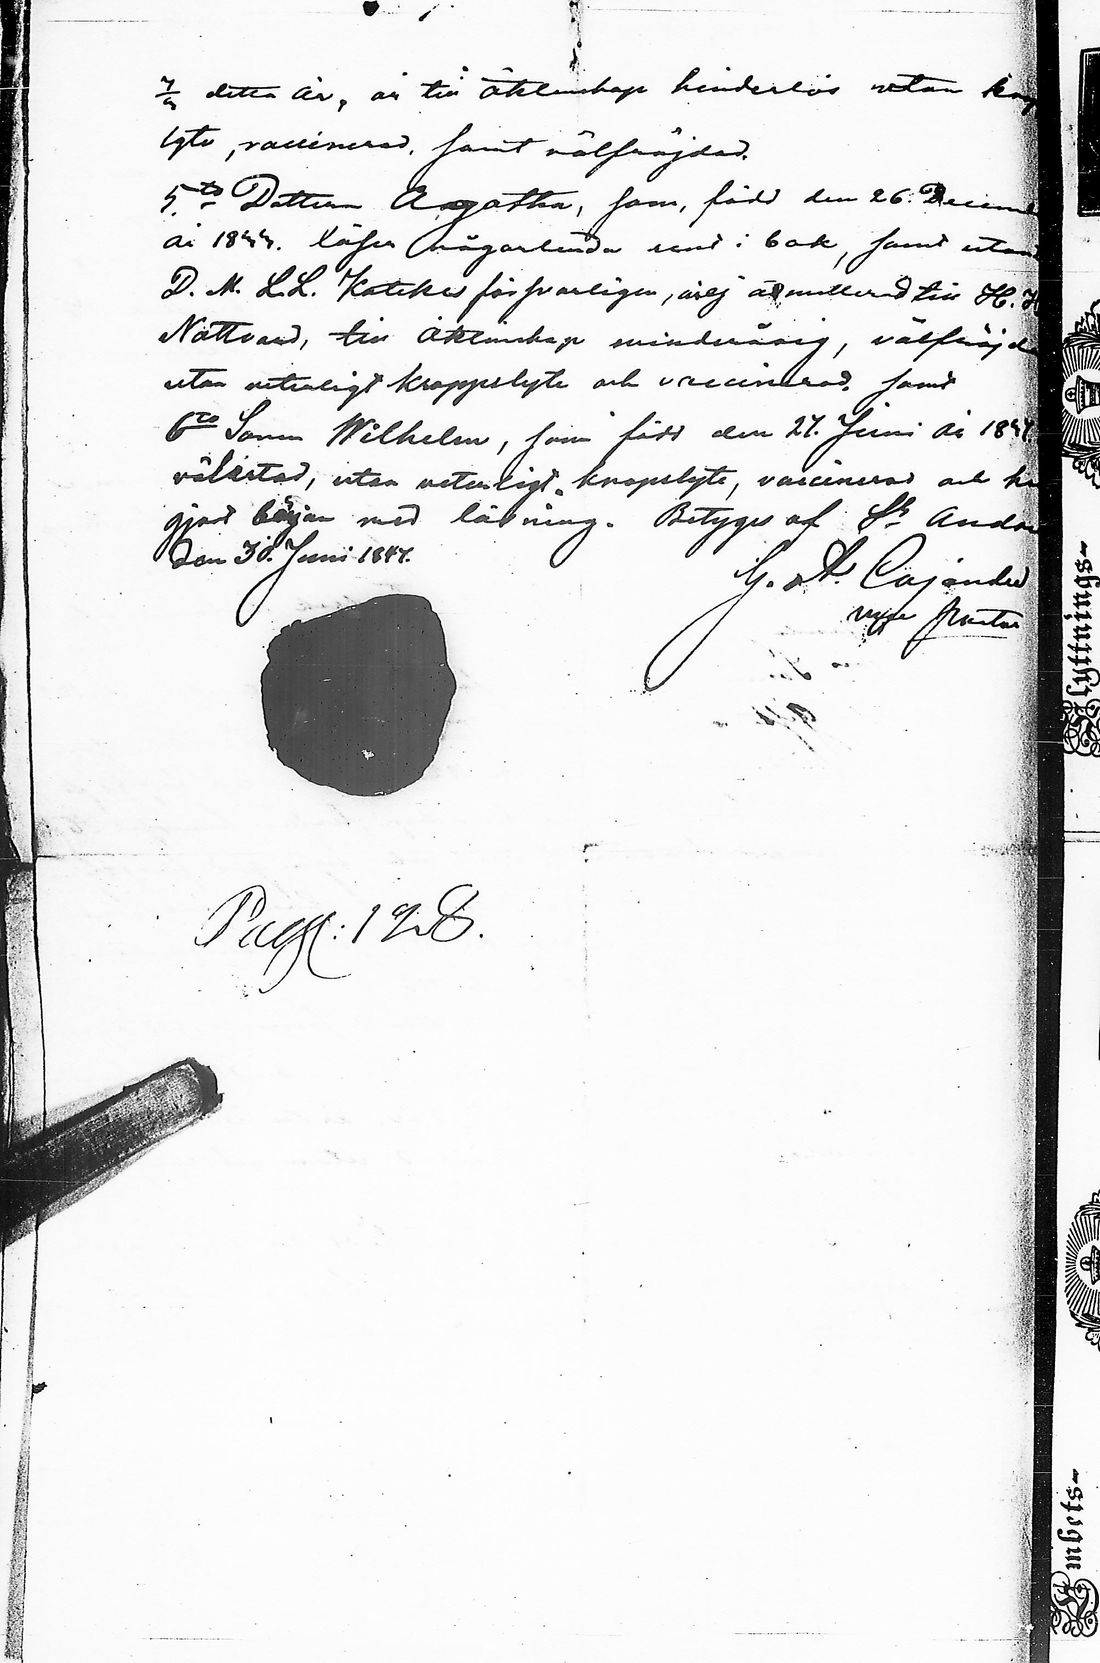 7/4 detta år, är till äktenskap hinderlös utan krop
lyte, vaccinerad, samt välfräjdad.
5.to Dottern Agatha, som, född den 26. Decemb
år 1844. läser någorlunda rent i bok, samt utan
D. M. L.L. Kateches försvarligen, är ej admitterad till H. H.
Nattvard, till äktenskap minderårig, välfräjda
utan veterligt kroppslyte och vaccinerad. samt
6to Sonen Wilhelm, som född den 27. Juni år 184
välartad, utan veterligt kropslyte, vaccinerad och ha
gjort början med läsning. Betyges af St Andr
den 30. Juni 1847.
G. A. Cajander
vice Pastor
Pag: 128.
Flyttnings-
Embets-